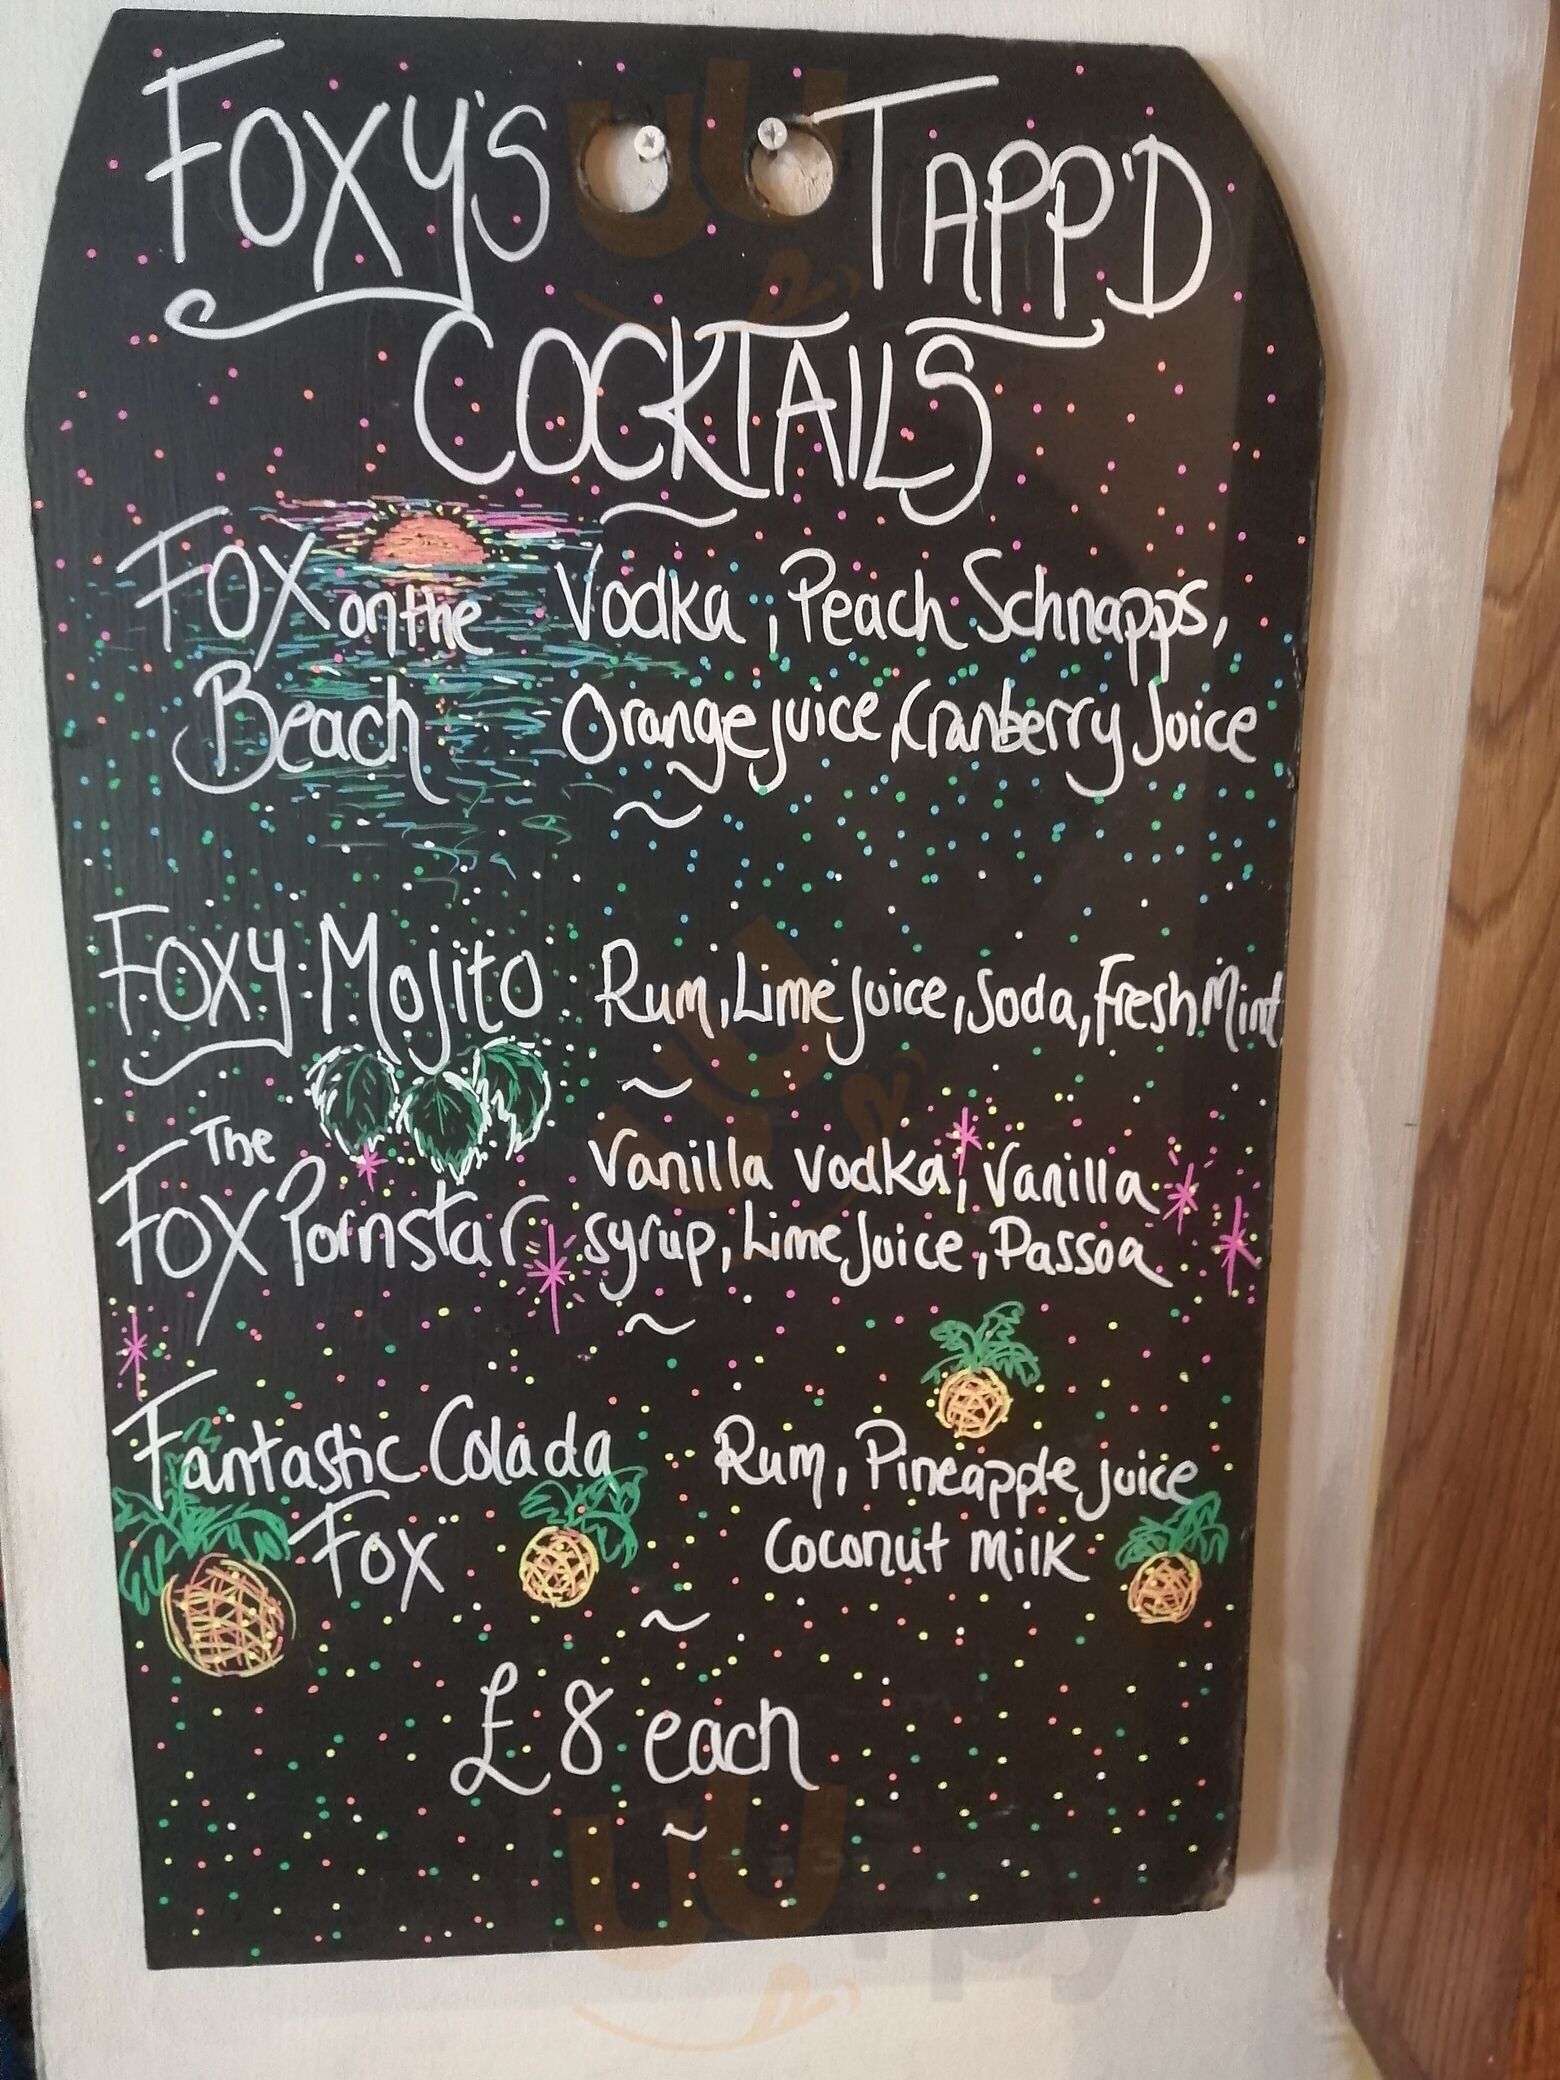 FOXY'S TAPP'D
COCKTAILS
FOX on the Vodka, Peach Schnapps,
Beach Orange juice, Cranberry Juice
~
FOXY MOJITO Rum, Lime Juice, Soda, Fresh Mint
~
The Vanilla Vodka, Vanilla
FOX Pornstar syrup, Lime Juice, Passoa
~
Fantastic Colada Rum, Pineapple juice
Fox Coconut Milk
~
£8 each
~